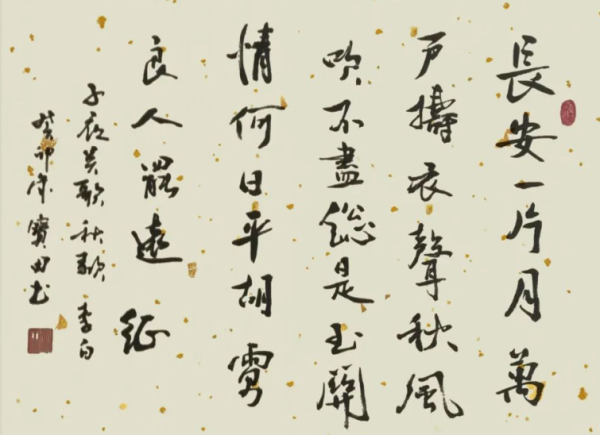 長安一片月萬
户擣衣聲秋風
吹不盡總是玉關
情何日平胡虜
良人罷遠征
子夜吴歌秋歌 李白
癸卯 寶田书